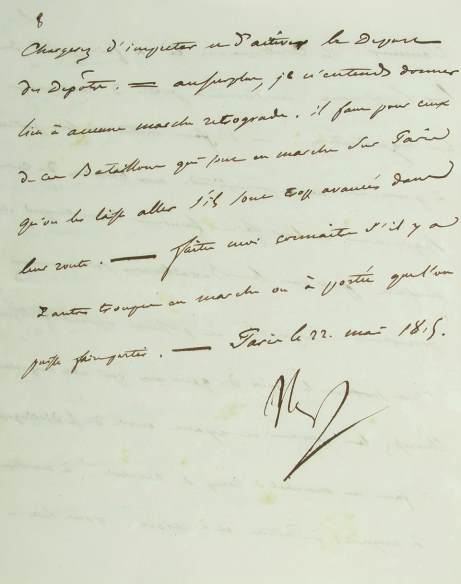 8
chargerez d'inspecter et d'activer le Depart
des Depôts. — au surplus, je n'entends donner
lieu à aucune marche retrograde. il faut pour ceux
de ces Bataillons qui sont en marche sur Paris
qu'on les laisse aller s'ils sont trop avancés dans
leur route. — faites moi connaitre s'il y a
d'autres troupes en marche ou à portée que l'on
puisse faire partir. — Paris le 22. mai 1815.
Np